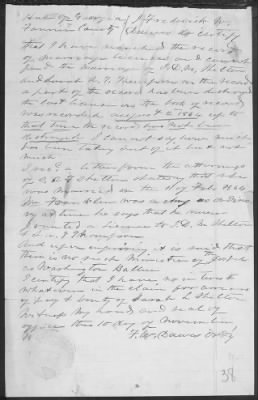 State of Georgia } I Frederick W.
Fannin County } Dawes do certify
that I have searched the record
of marriage licenses and cannot
find the license of J. D. M. Shelton
and Sarah L. Thompson on the record
a part of the record has been destroyed
the last license on the book of record
was recorded august 2 1864 up to
that time the record has not been
destroyed I cannot say how much
has been taken out of it but not
much
I rec'd a letter from the attorneys
of S. L. Shelton stating that she
was married on the 11 of Feb 1864
Mr Franklin was acting as ordinary
at time he says that he never
granted a license to J. D. M. Shelton
& L. Thompson
And upon enquiring it is said that
there is no such Minister of Gospel
as Washington Ballew
I certify that I have no interest
whatever in the claim for arrears
of pay & bounty of Sarah L. Shelton
Witness My hand and seal of
office this 10 day of November
F. W. Dawes Ord'y
38